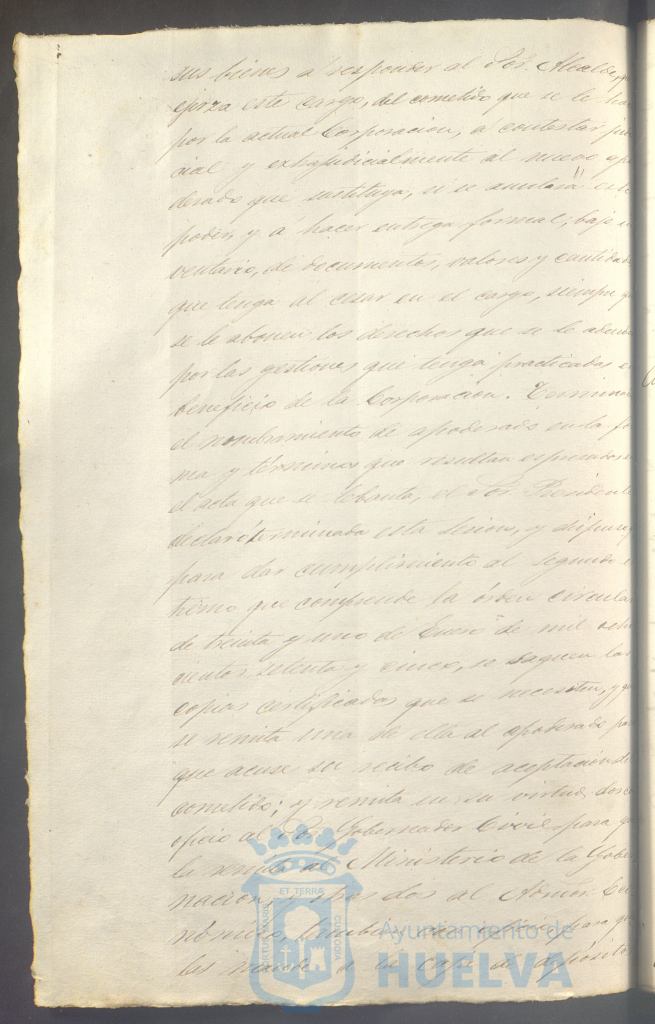 sus bienes á responder al Sor. Alcalde, que
ejerza este cargo, del cometido que se le hace
por la actual Corporacion, á contestar judi
cial y extrajudicialmente al nuevo apo
derado que sustituya, si se anulara este
poder, y á hacer entrega formal, bajo in
ventario, de documentos, valores y cantidades
que tenga al cesar en el cargo, siempre que
se le abonen los derechos que se le adeuden
por las gestiones que tenga practicadas en
beneficio de la Corporacion. Terminado
el nombramiento de apoderado en la for
ma y términos que resultan espresados en
el acta que se lebanta, el Sor. Presidente
declaró terminada esta sesion, y dispuso
para dar cumplimiento al segundo es
tremo que comprende la órden circular
de treinta y uno de Enero de mil ocho
cientos setenta y cinco, se saquen las
copias certificadas que se necesiten, y que
se remita una de ella al apoderado para
que acuse su recibo de aceptacion del
cometido; y remita en su virtud, dos con
oficio al Sor. Gobernador Civil para que
la remita al Ministerio de la Gober
nacion, y otras dos al Admor. Eco
nómico, tambien para que
las mande á la caja de depósitos
ET TERRÆ
PORTUS MARIS
CUSTODIA
Ayuntamiento de
HUELVA